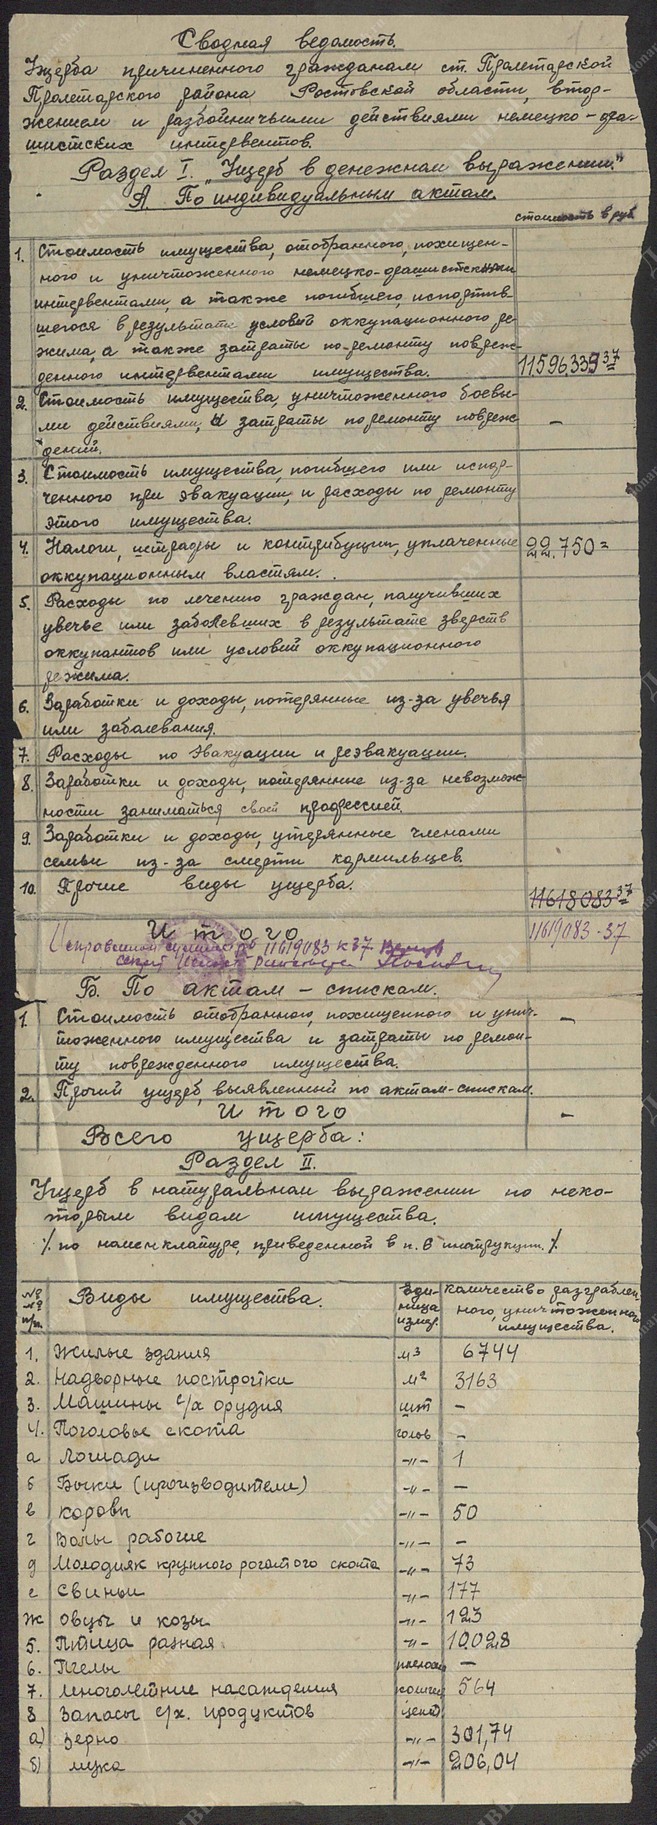 Сводная ведомость.
Ущерба причиненного гражданам ст. Пролетарской
Пролетарского района Ростовской области, втор-
жением и разбойничьими действиями немецко-фа
шистских интервентов.
Раздел I. "Ущерб в денежном выражении."
А. По индивидуальным актам.
стоимость в руб.
1. Стоимость имущества, отобранного, похищен-
ного и уничтоженного немецко-фашистскими
интервентами, а также погибшего, испортив-
шегося в результате условий оккупационного ре-
жима, а также затраты по ремонту повреж-
денного интервентами имущества. 11596339 37
2. Стоимость имущества, уничтоженного боевы-
ми действиями, и затраты по ремонту повреж- –
дений.
3. Стоимость имущества, погибшего или испор-
ченного при эвакуации, и расходы по ремонту
этого имущества.
4. Налоги, штрафы и контрибуции, уплаченные 22.750=
оккупационным властям.
5. Расходы по лечению граждан, получивших
увечье или заболевших в результате зверств
оккупантов или условий оккупационного
режима.
6. Заработки и доходы, потерянные из-за увечья
или заболевания.
7. Расходы по эвакуации и реэвакуации.
8. Заработки и доходы, потерянные из-за невозмож
ности заниматься своей профессией
9. Заработки и доходы, утерянные членами
семьи из-за смерти кормильцев.
10. Прочие виды ущерба. 11618083 37
Итого 11619083-37
11619083 к 37
Б. По актам - спискам.
1. Стоимость отобранного, похищенного и унич- –
тоженного имущества и затраты по ремон-
ту поврежденного имущества.
2. Прочий ущерб, выявленный по актам-спискам.
Итого –
Всего ущерба:
Раздел II.
Ущерб в натуральном выражении по неко-
торым видам имущества.
/. по номенклатуре, приведенной в п. 6 инструкции. /.
№ № п/п. Виды имущества. Еди- ница измер. Количество разграблен ного, уничтоженного имущества.
1. Жилые здания м³ 6744
2. Надворные постройки м² 3163
3. Машины с/х орудия шт –
4. Поголовье скота голов –
а Лошади -"- 1
б Быки (производители) -"- –
в Коровы -"- 50
г Волы рабочие -"- –
д Молодняк крупного рогатого скота -"- 73
е Свиньи -"- 177
ж овцы и козы -"- 123
5. Птица разная -"- 10028
6. Пчелы –
7. Многолетние насаждения 564
8 Запасы с/х. продуктов цент.
а) зерно -"- 301,74
б) мука -"- 206,04